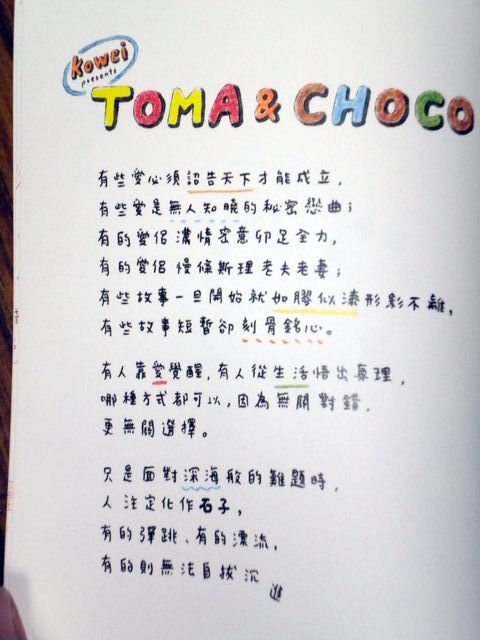 kowei
presents
TOMA & CHOCO
有些愛必須詔告天下才能成立，
有些愛是無人知曉的秘密戀曲；
有的愛侶濃情密意卯足全力，
有的愛侶慢條斯理老夫老妻；
有些故事一旦開始就如膠似漆形影不離，
有些故事短暫卻刻骨銘心。
有人靠愛覺醒，有人從生活悟出真理，
哪種方式都可以，因為無關對錯，
更無關選擇。
只是面對深海般的難題時，
人注定化作石子，
有的彈跳、有的漂流，
有的則無法自拔沉
進